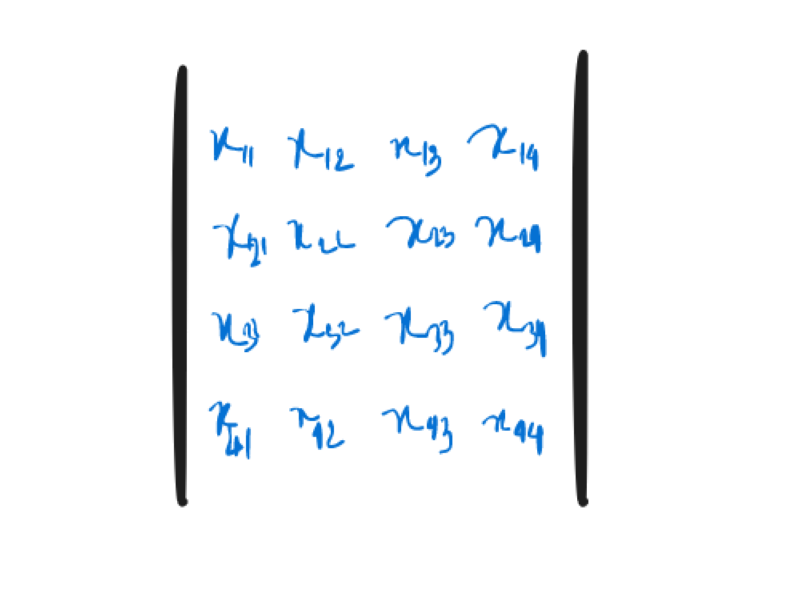 x₁₁ x₁₂ x₁₃ x₁₄
x₂₁ x₂₂ x₂₃ x₂₄
x₃₁ x₃₂ x₃₃ x₃₄
x₄₁ x₄₂ x₄₃ x₄₄